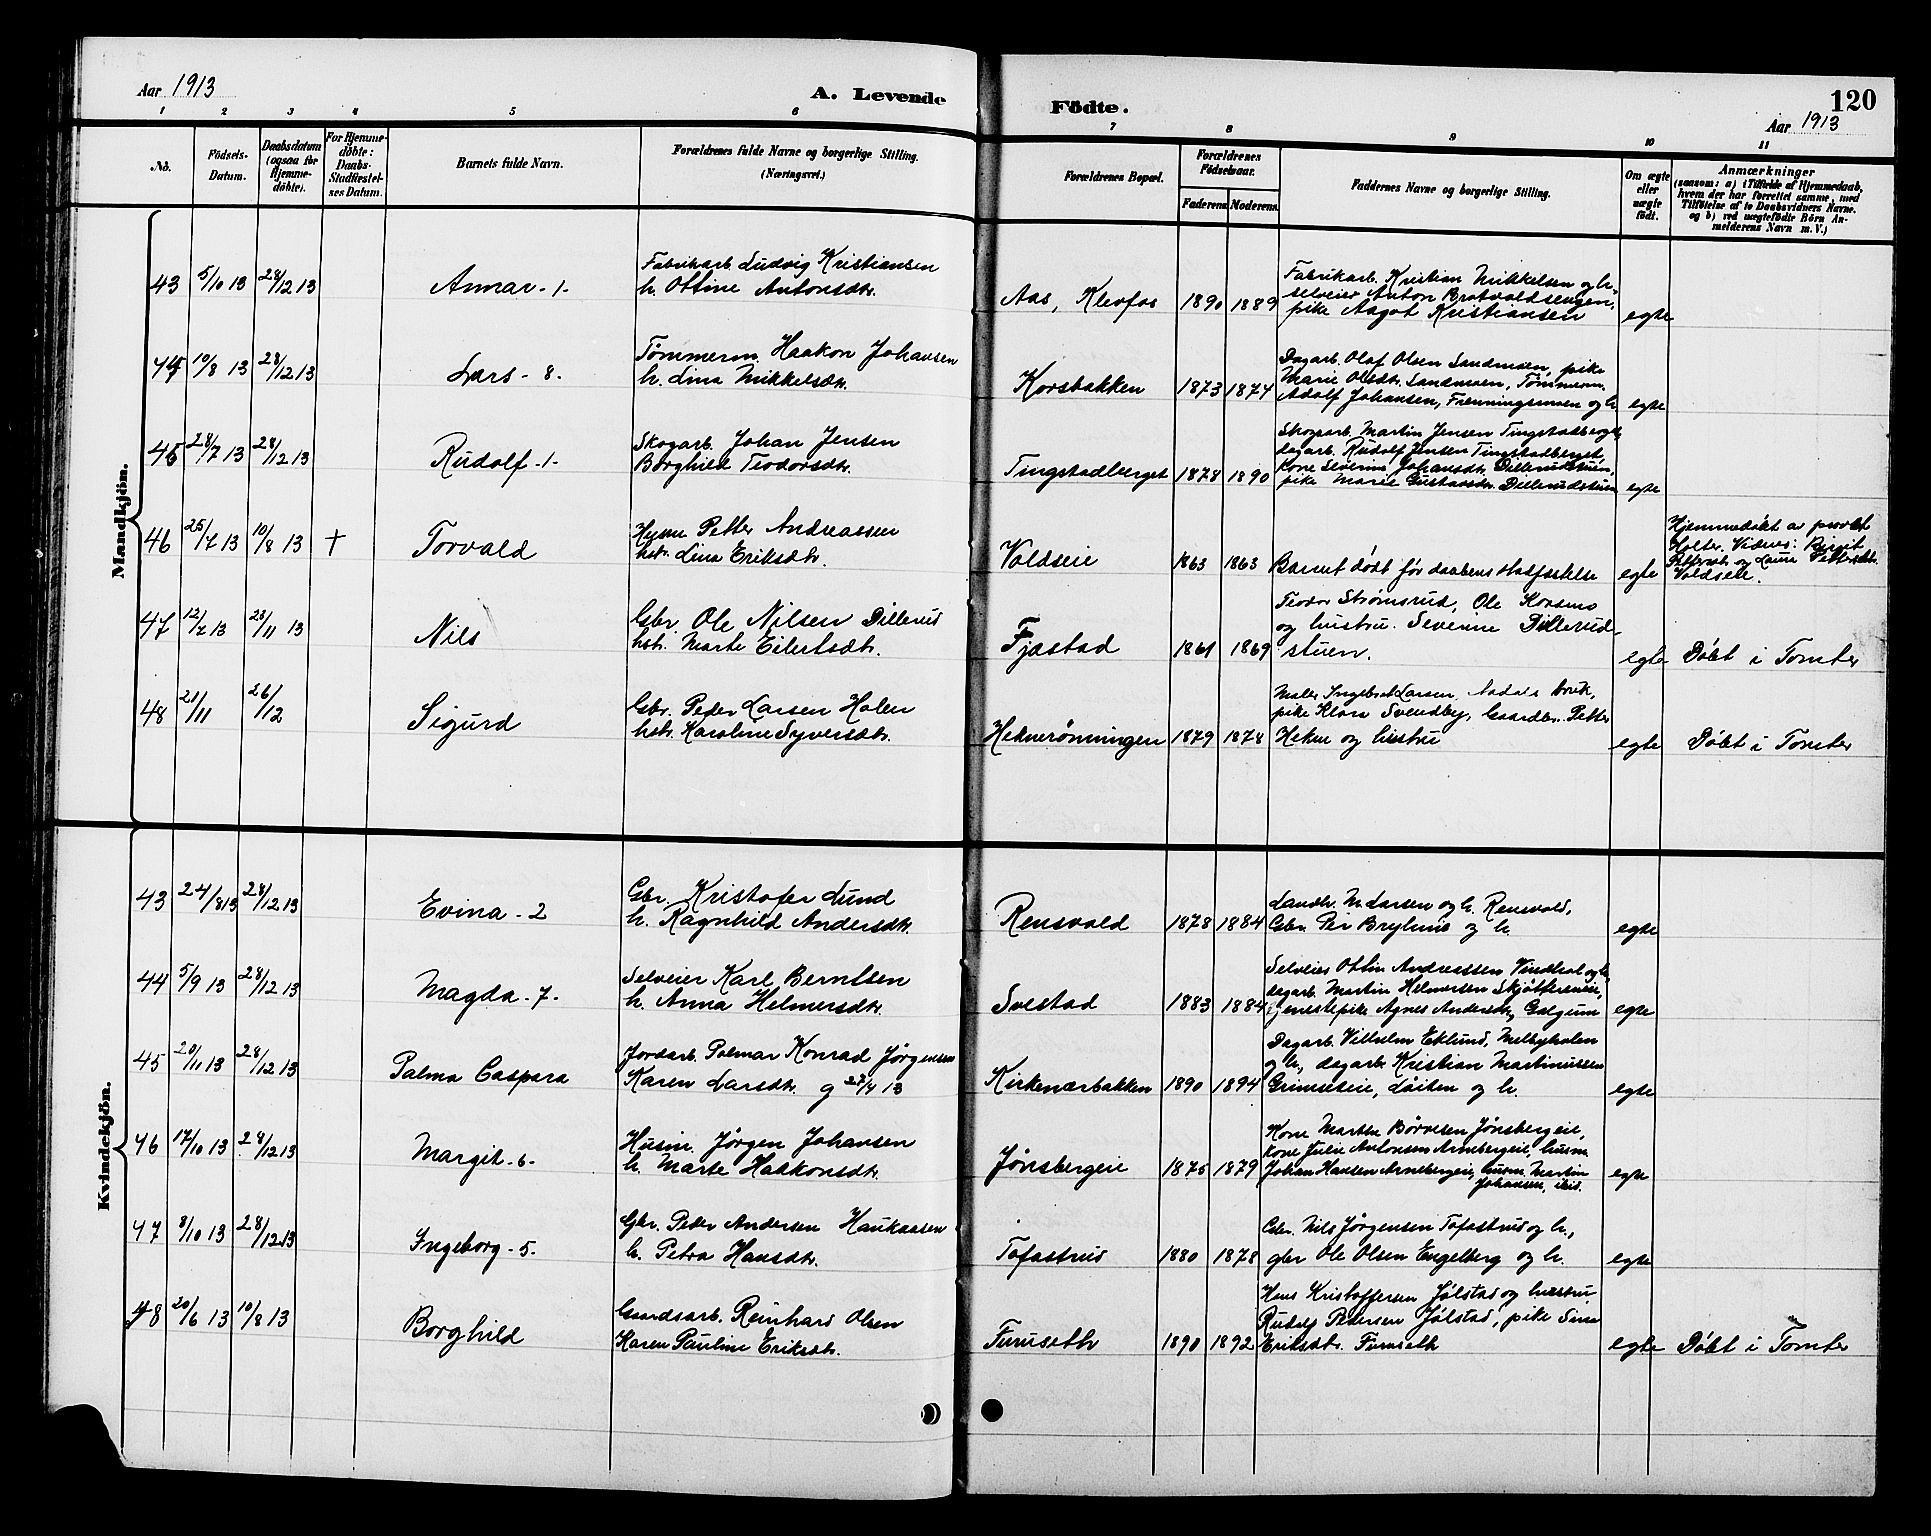 Aar 1913
A. Levende Födte.
120
Aar 1913
1 2 3 4 5 6 7 8 9 10 11
No.
Födsels-Datum.
Daabsdatum (ogsaa for Hjemme-döbte).
For Hjemme-döbte: Daabs-Stadfæstel-ses Datum.
Barnets fulde Navn.
Forældrenes fulde Navne og borgerlige Stilling.
(Næringsvei.)
Forældrenes Bopæl.
Forældrenes Födselsaar.
Faderens. Moderens.
Faddernes Navne og borgerlige Stilling.
Om ægte eller uægte født.
Anmærkninger
(saasom: a) i Tilfælde af Hjemmedaab,
hvem der har forrettet samme, med
Tilföielse af to Daabsvidners Navne.
og b) ved uægtefödte Börn An-
melderens Navn m. V.)
Mandkjön.
43 5/10 13 28/12 13 Annar - 1 -
Fabrikarb. Ludvig Kristiansen
h. Ottine Antonsdtr.
Aas, Klevfos 1890 1889
Fabrikarb. Kristian Mikkelsen og h.
selveier Anton Bratvoldsengen,
pike Aagot Kristiansen
egte
44 10/8 13 28/12 13 Lars - 8.
Tømmerm. Haakon Johansen
h. Lina Mikkelsdtr.
Korsbakken 1873 1874
Dagarb. Olaf Olsen Sandmoen, pike
Marie Olsdtr. Sandmoen, Tømmerm.
Adolf Johansen, Frenningsmoen og h.
egte
45 28/7 13 28/12 13 Rudolf - 1 -
Skogarb. Johan Jensen
Borghild Teodorsdtr.
Tingstadberget 1878 1890
Skogarb. Martin Jensen Tingstadberget,
dagarb. Rudolf Jensen Tingstadberget,
kone Severine Johansdtr. Dillerudstuen,
pike Marie Gustavsdtr. Dillerudstuen
egte
46 25/7 13 10/8 13 † Torvald
Husm Petter Andreassen
hstr. Lina Eriksdtr.
Voldseie 1863 1863
Barnet dødt før daabens stadfæstelse
egte
Hjemmedøbt av provst
Holter. Vidner: Birgit
Pettersdtr. og Laura Pettersdtr.
Voldseie.
47 12/7 13 23/11 13 Nils
Gbr Ole Nilsen Dillerud
hstr. Marte Eilertsdtr.
Fjæstad 1861 1869
Teodor Strømsrud, Ole Korsmo
og hustru. Severine Dillerud-
stuen.
egte Døbt i Tomter
48 21/11 26/12 Sigurd
Gbr. Peder Larsen Holen
hstr. Karoline Syversdtr.
Heknerønningen 1879 1878
Maler Ingebret Larsen, Aadals bruk,
pike Klara Svendby, Gaardbr. Petter
Hekne og hustru
egte Døbt i Tomter
Kvindekjön.
43 24/8 13 28/12 13 Evina - 2
Gbr. Kristofer Lund
h. Ragnhild Andersdtr.
Rensvold 1878 1884
Landh. M. Larsen og h. Rensvold,
Gbr. Per Bryhni og h.
egte
44 5/9 13 28/12 13 Magda - 7 -
Selveier Karl Berntsen
h. Anna Helmersdtr.
Svestad 1883 1884
Selveier Ottin Andreassen Vindhol og h.
dagarb. Martin Helmersen Skjøttereneie,
tjenestepike Agnes Andersdtr. Galgum
egte
45 20/11 13 28/12 13 Palma Caspara
Jordarb. Palmar Konrad Jørgensen
Karen Larsdtr. g 27/4 13
Kirkenærbakken 1890 1894
Dagarb. Vilhelm Eklund, Melbyholen
og h., dagarb. Kristian Martinussen
Grimseteie, Løiten og h.
egte
46 17/10 13 28/12 13 Margit - 6 -
Husm. Jørgen Johansen
h. Marte Haakonsdtr.
Jønsbergeie 1875 1879
Kone Marthe Børresen Jønsbergeie,
kone Julie Antonsen Arnebergeie, husm.
Johan Hansen Arnebergeie, husm. Martin
Johansen, ibid.
egte
47 8/10 13 28/12 13 Ingeborg - 5.
Gbr. Peder Andersen Haukaasen
h. Petra Hansdtr.
Tofastrud 1880 1878
Gbr. Nils Jørgensen Tofastrud og h.,
gbr Ole Olsen Engelberg og h.
egte
48 20/6 13 10/8 13 Borghild
Gaardsarb. Reinhard Olsen
Karen Pauline Eriksdtr.
Furuseth 1890 1892
Hans Kristoffersen Jølstad og hustru
Rudolf Pedersen Jølstad, pike Sina
Eriksdtr. Furuseth
egte Døbt i Tomter